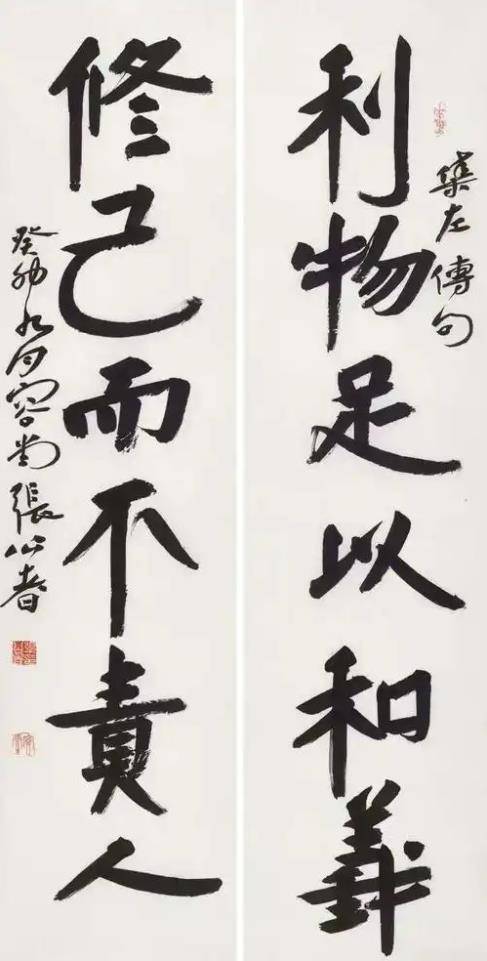 集左傳句
利物足以和義
修己而不責人
癸卯九月容張公者